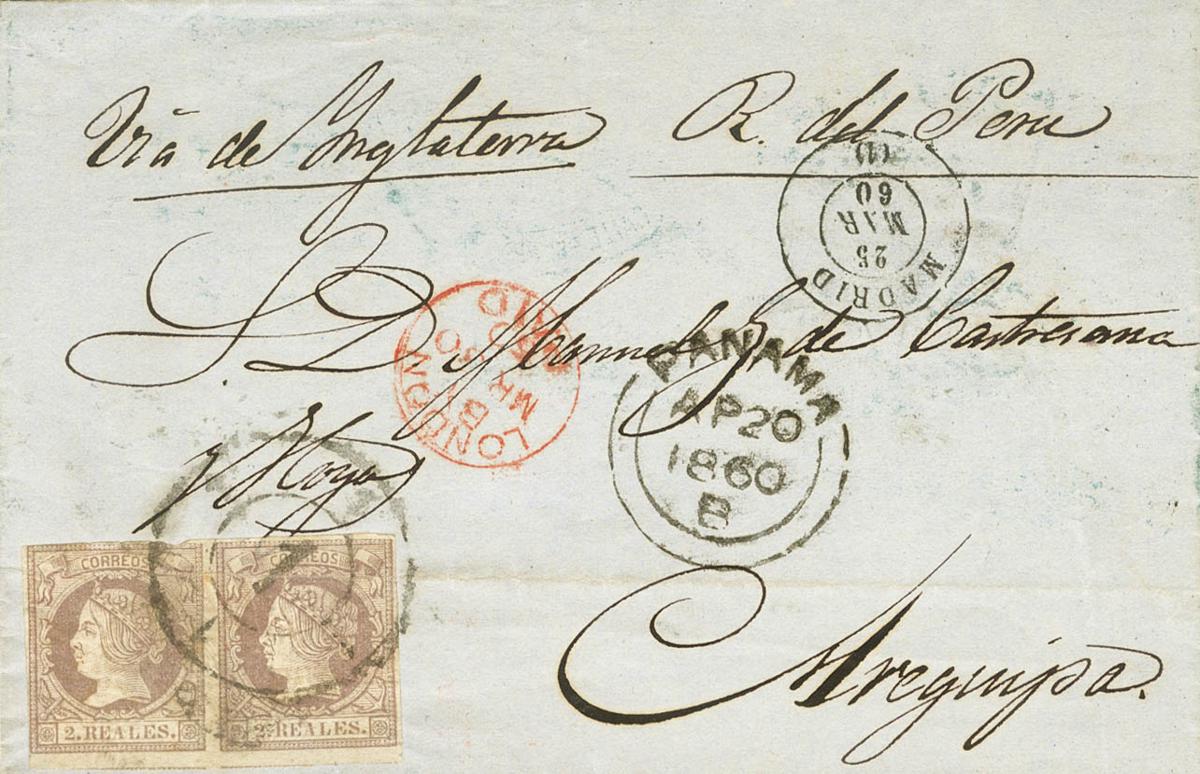 Via de Inglaterra R. del Peru
(1)
60
MAR
25
MADRID
S. D. Manuel G. de Castresana
LONDON
PAID
MR
60
PANAMA
AP 20
1860
B
y Moya
CORREOS CORREOS
2. REALES. 2. REALES.
Arequipa.